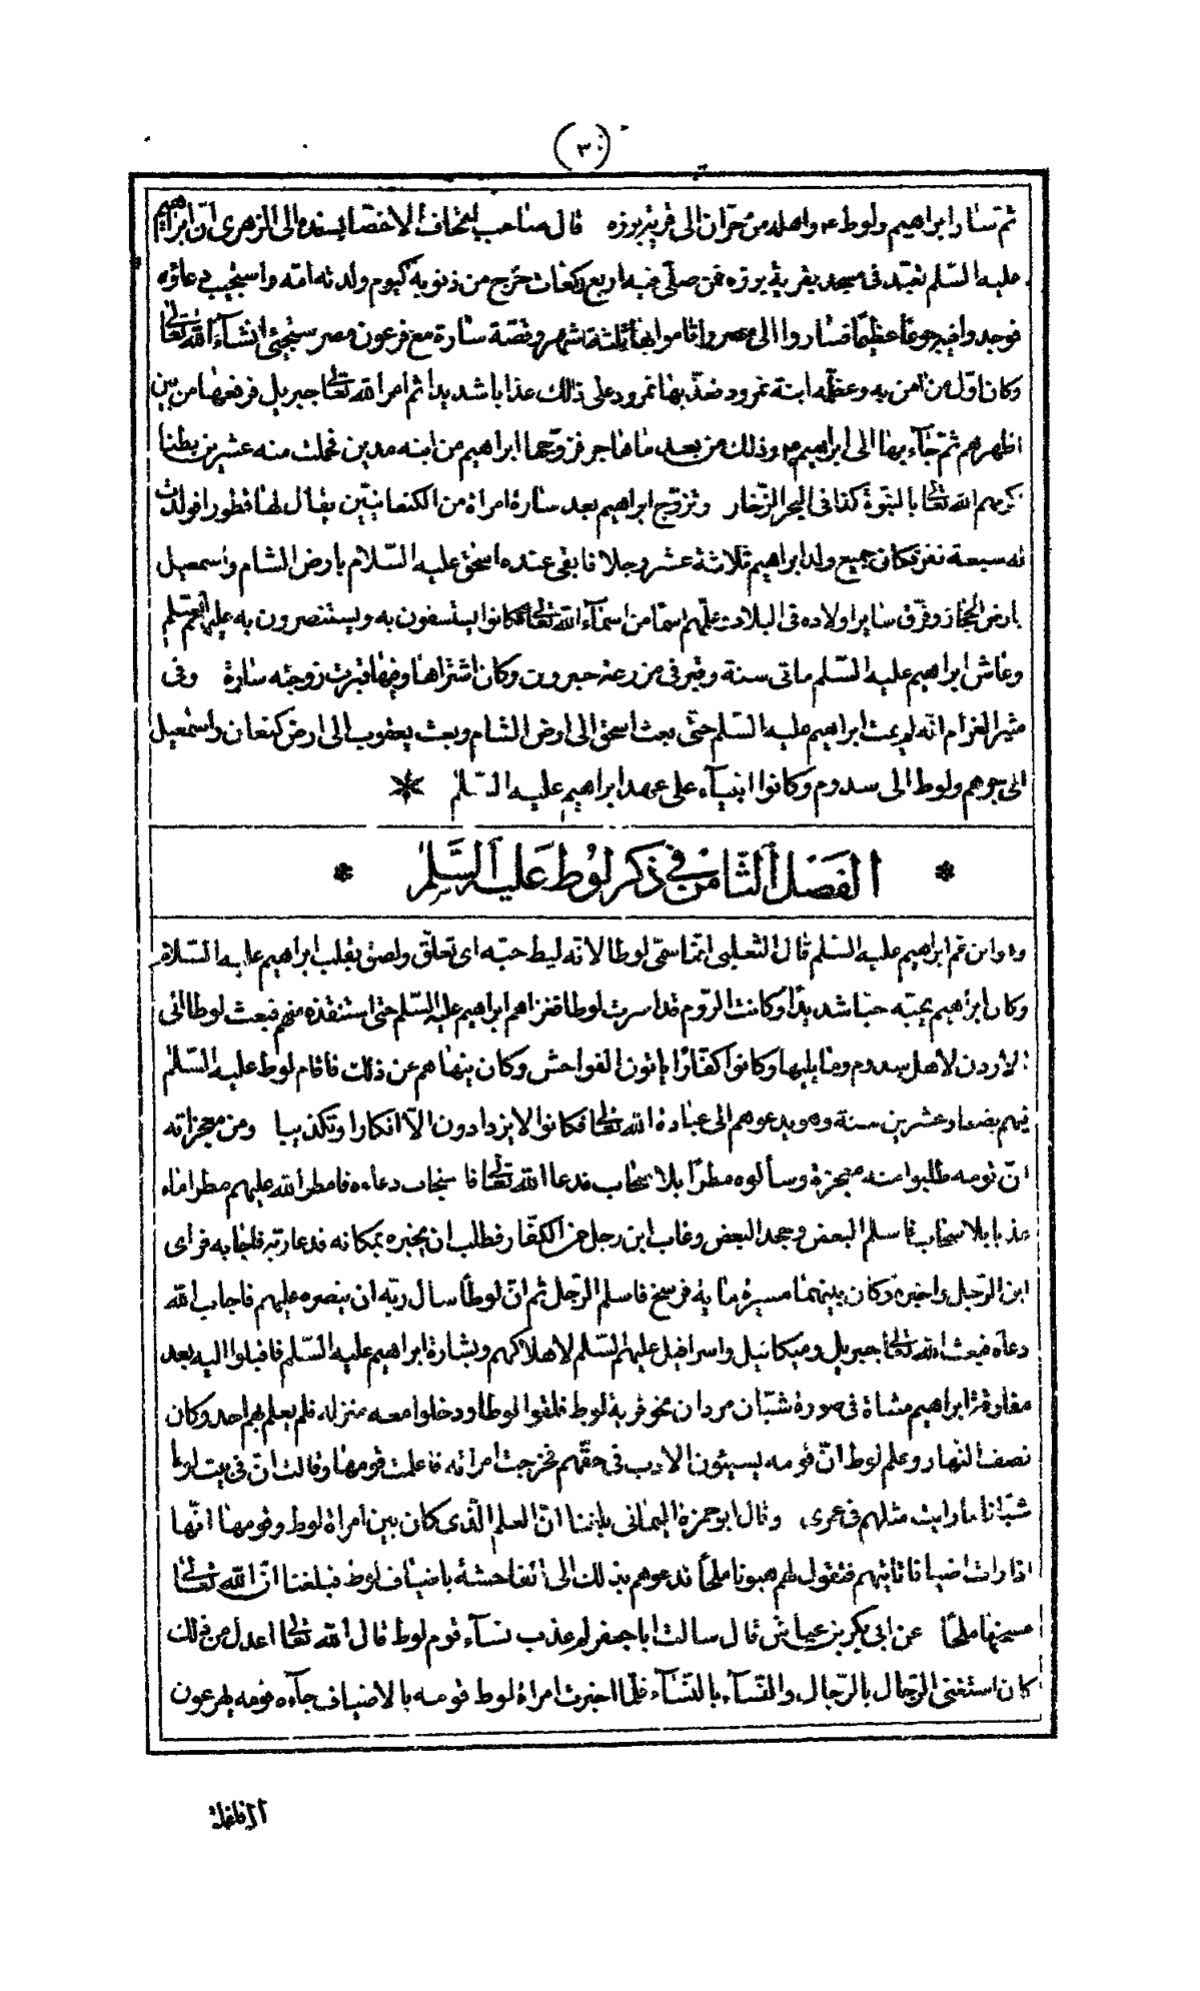 (٣٠)
ثم سار ابراهيم ولوط عم واهله من حرّان الى قرية برزه قال صاحب اتحاف الاخصا بسنده الى الزهرى انّ ابراهيم
عليه السّلم تعبّد فى مسجد بقرية برزه فمن صلّى فيه اربع ركعات خرج من ذنوبه كيوم ولدته امّه واستجيب دعاؤه
فوجدوا فيه جوعا عظيمًا فساروا الى مصر واقاموا بها ثلثة اشهر وقصّة سارة مع فرعون مصر ستجئ انشآء الله تعالى
وكان اوّل من آمن به وعظّمه ابنة نمرود فعذّبها نمرود على ذلك عذابا شديدا ثم امر الله تعالى جبريل فرفعها من بين
اظهرهم ثم جآء بها الى ابراهيم عم وذلك من بعد ما هاجر فزوّجها ابراهيم من ابنه مدين فحملت منه عشرين بطنا
كرمهم الله تعالى بالنبوّة كذا فى البحر الزخّار وتزوّج ابراهيم بعد سارة امراة من الكنعانيّين يقال لها قطورا فولدت
له سبعة نفر فكان جميع ولد ابراهيم ثلاثة عشر رجلا فابقى عنده اسحق عليه السّلام بارض الشام واسمعيل
بارض الحجاز وفرّق ساير اولاده فى البلاد وعلّمهم اسمًا من اسمآء الله تعالى فكانوا يستسقون به ويستنصرون به
وعاش ابراهيم عليه السّلم ماتى سنة وقبر فى مزرعة حبرون وكان اشتراها وفيها قبرت زوجته سارة وفى
مثير الغرام انّه لم يمت ابراهيم عليه السّلم حتّى بعث اسحق الى ارض الشام وبعث يعقوب الى ارض كنعان واسمعيل
الى جرهم ولوط الى سدوم وكانوا انبيآء على عهد ابراهيم عليه السّلم *
* الفصل الثامن فى ذكر لوط عليه السّلم *
وهو ابن عم ابراهيم عليه السّلم قال الثعلبى انّما سمّى لوطا لانّه ليط حبّه اى تعلّق ولصق بقلب ابراهيم عليه السّلام
وكان ابراهيم يحبّه حبّا شديدًا وكانت الرّوم قد اسرت لوطا فغزاهم ابراهيم عليه السّلم حتى استنقذه منهم فبعث لوطا الى
الاردن لاهل سدوم وما يليها وكانوا كفّارًا ياتون الفواحش وكان ينهاهم عن ذلك فاقام لوط عليه السّلم
فيهم بضعا وعشرين سنة وهو يدعوهم الى عبادة الله تعالى فكانوا لا يزدادون الّا انكارا وتكذيبا ومن معجزاته
انّ قومه طلبوا منه معجزة وسألوه مطرًا بلا سحاب فدعا الله تعالى فاستجاب دعاءه فامطر الله عليهم مطرا ماء
عذبا بلا سحاب فاسلم البعض وجحد البعض وغاب ابن رجل من الكفّار فطلب ان يخبره بمكانه فدعا ربّه فاجابه فراى
ابن الرّجل واخبره وكان بينهما مسيرة ماية فرسخ فاسلم الرّجل ثم انّ لوطًا سال ربّه ان ينصره عليهم فاجاب الله
دعآه فبعث الله تعالى جبريل وميكائيل واسرافيل عليهم السّلم لاهلاكهم وبشارة ابراهيم عليه السّلم فاقبلوا اليه بعد
مفارقة ابراهيم مشاة فى صورة شبّان مردان نحو قرية لوط فلقوا لوطا ودخلوا معه منزله فلم يعلم بهم احد وكان
نصف النهار وعلم لوط انّ قومه يسيئون الادب فى حقّهم فخرجت امراته فاعلمت قومها وقالت انّ فى بيت لوط
شبّانا ما رايت مثلهم فى عمرى وقال ابو حمزة اليمانى بلغنا انّ العلم الّذى كان بين امراة لوط وقومها انّها
اذا رات اضيافا تاتيهم فتقول لهم هبونا ملحًا تدعوهم بذلك الى الفاحشة باضياف لوط فبلغنا انّ الله تعالى
مسخها ملحًا عن ابى بكر بن عياش قال سالت ابا جعفر لم عذب نسآء قوم لوط قال الله تعالى اعدل من ذلك
كان استغنى الرّجال بالرّجال والنّسآء بالنّسآء فلمّا اخبرت امراة لوط قومه بالاضياف جآءه قومه يهرعون